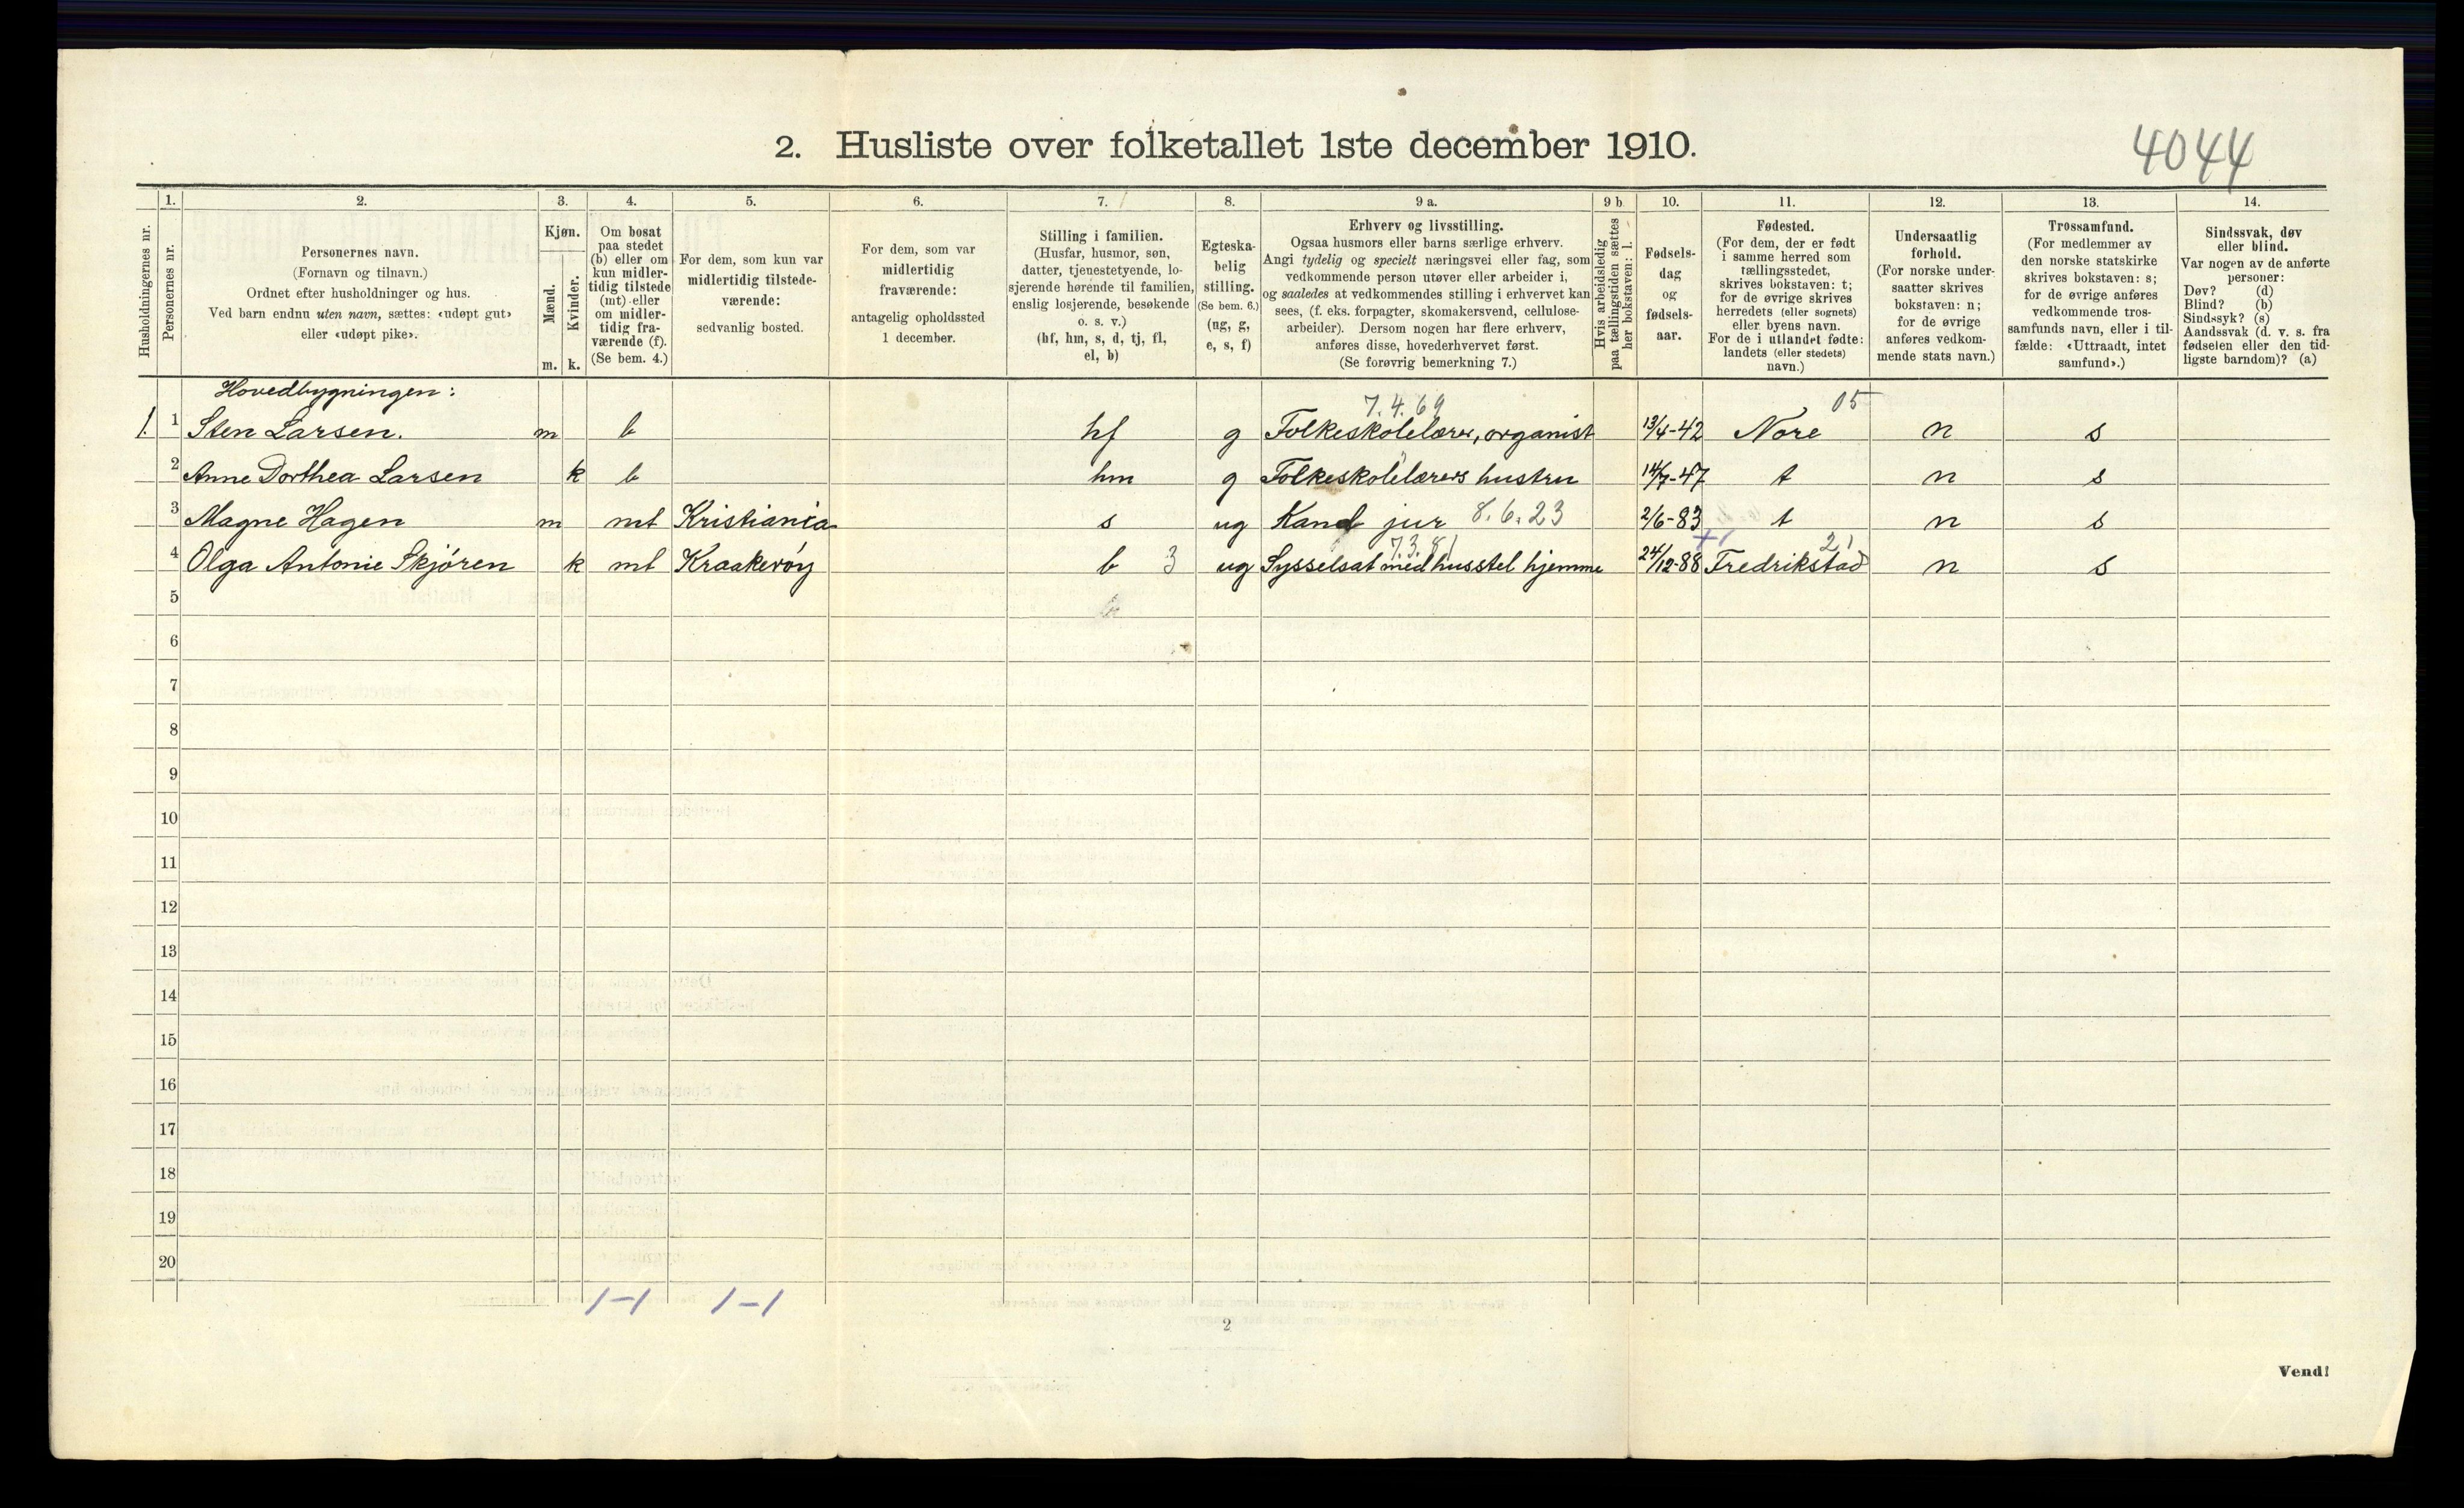 4044
2. Husliste over folketallet 1ste december 1910.
Husholdningernes nr.
1.
Personernes nr.
2.
Personernes navn.
(Fornavn og tilnavn.)
Ordnet efter husholdninger og hus.
Ved barn endnu uten navn, sættes: «udøpt gut»
eller «udøpt pike».
3.
Kjøn.
Mænd.
Kvinder.
m. k.
4.
Om bosat
paa stedet
(b) eller om
kun midler-
tidig tilstede
(mt) eller
om midler-
tidig fra-
værende (f).
(Se bem. 4.)
5.
For dem, som kun var
midlertidig tilstede-
værende:
sedvanlig bosted.
6.
For dem, som var
midlertidig
fraværende:
antagelig opholdssted
1 december.
7.
Stilling i familien.
(Husfar, husmor, søn,
datter, tjenestetyende, lo-
sjerende hørende til familien,
enslig losjerende, besøkende
o. s. v.)
(hf, hm, s, d, tj, fl,
el, b)
8.
Egteska-
belig
stilling.
(Se bem. 6.)
(ug, g,
e, s, f)
9 a.
Erhverv og livsstilling.
Ogsaa husmors eller barns særlige erhverv.
Angi tydelig og specielt næringsvei eller fag, som
vedkommende person utøver eller arbeider i,
og saaledes at vedkommendes stilling i erhvervet kan
sees, (f. eks. forpagter, skomakersvend, cellulose-
arbeider). Dersom nogen har flere erhverv,
anføres disse, hovederhvervet først.
(Se forøvrig bemerkning 7.)
9 b.
Hvis arbeidsledig
paa tællingstiden sættes
her bokstaven: l.
10.
Fødsels-
dag
og
fødsels-
aar.
11.
Fødested.
(For dem, der er født
i samme herred som
tællingsstedet,
skrives bokstaven: t;
for de øvrige skrives
herredets (eller sognets)
eller byens navn.
For de i utlandet fødte:
landets (eller stedets)
navn.)
12.
Undersaatlig
forhold.
(For norske under-
saatter skrives
bokstaven: n;
for de øvrige
anføres vedkom-
mende stats navn.)
13.
Trossamfund.
(For medlemmer av
den norske statskirke
skrives bokstaven: s;
for de øvrige anføres
vedkommende tros-
samfunds navn, eller i til-
fælde: «Uttraadt, intet
samfund».)
14.
Sindssvak, døv
eller blind.
Var nogen av de anførte
personer:
Døv? (d)
Blind? (b)
Sindssyk? (s)
Aandssvak (d. v. s. fra
fødselen eller den tid-
ligste barndom)? (a)
Hovedbygningen:
7.4.69 05
1. 1 Sten Larsen. m b hf g Folkeskolelærer, organist 13/4-42 Nore n s
2 Anne Dorthea Larsen k b hm g Folkeskolelærers hustru 14/7-47 t n s
3 Magne Hagen m mt Kristiania s ug Kand jur 8.6.23 2/6-83 t n s
7.3.81 +1 21
4 Olga Antonie Skjören k mt Kraakeröy b 3 ug Sysselsat med husstel hjemme 24/12-88 Fredrikstad n s
5 b
6
7
8
9
10
11
12
13
14
15
16
17
18
19
20
1-1 1-1
2
Vend!